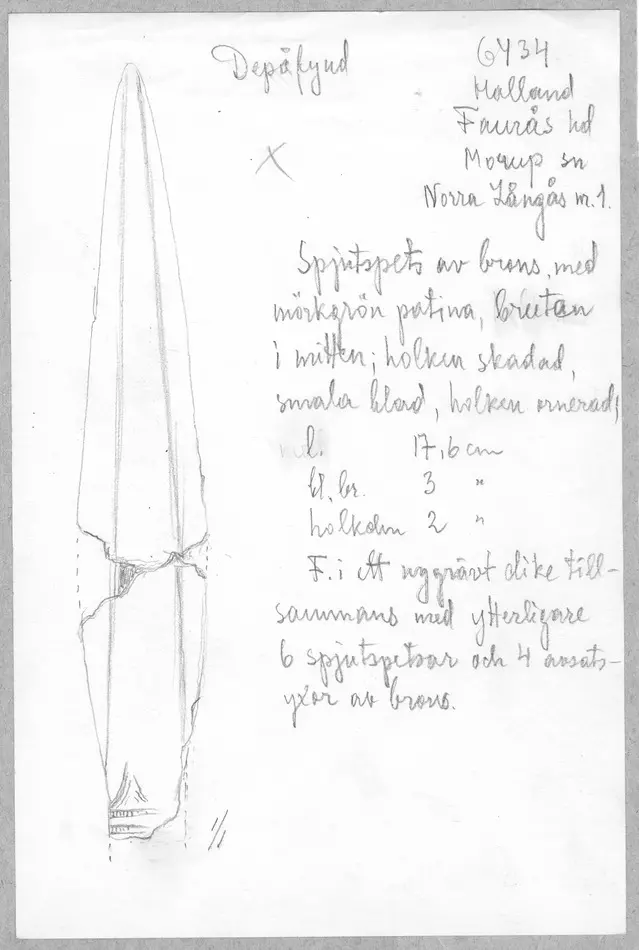 Depåfynd
6434
Halland
Faurås hd
Morup sn
Norra Långås nr. 1.
X
Spjutspets av brons, med
mörkgrön patina, bruten
i mitten; holken skadad,
smala blad, holken ornerad;
l. 17,6 cm
bl. br. 3 "
holkdm 2 "
F. i ett nygrävt dike till-
sammans med ytterligare
6 spjutspetsar och 4 avsats-
yxor av brons.
1/1